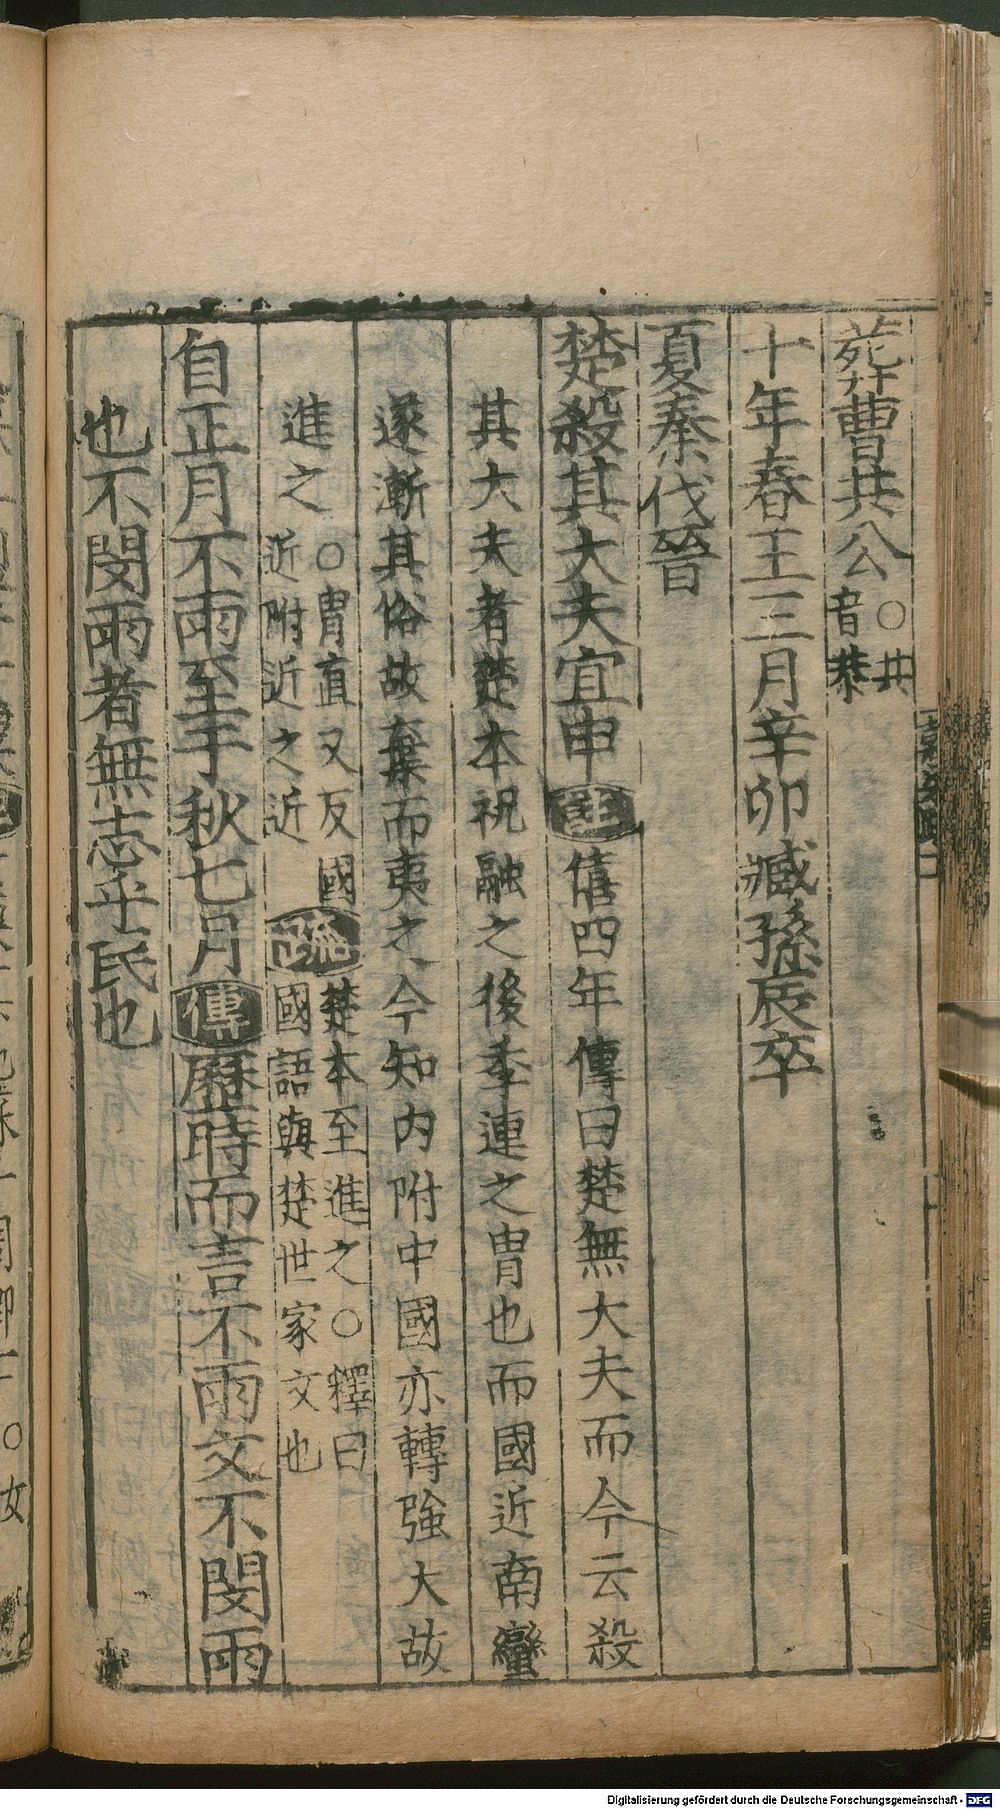 葬曹共公○共音恭
十年春王三月辛卯臧孫辰卒
夏秦伐晉
楚殺其大夫宜申註僖四年傳曰楚無大夫而今云殺
其大夫者楚本祝融之後季連之胄也而國近南蠻
遂漸其俗故棄而夷之今知内附中國亦轉強大故
進之○胄直又反國近附近之近疏楚本至進之○釋曰國語與楚世家文也
自正月不雨至于秋七月傳歷時而言不雨文不閔雨
也不閔雨者無志乎民也
Digitalisierung gefördert durch die Deutsche Forschungsgemeinschaft - DFG